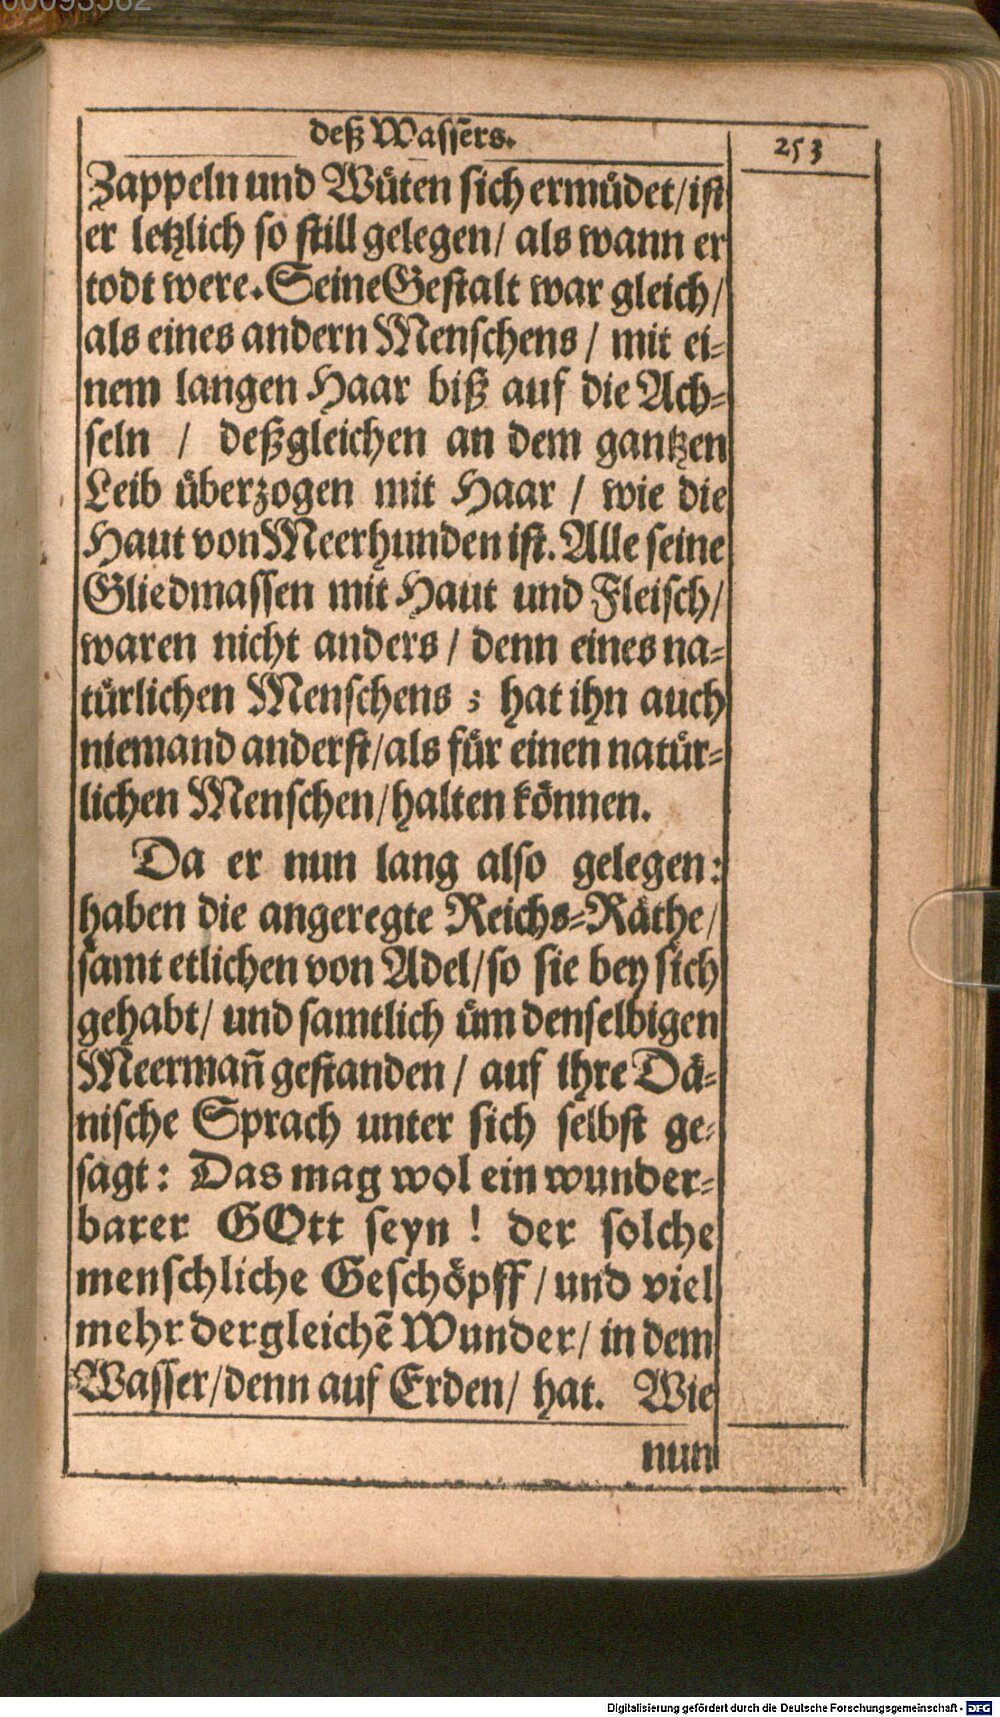 00093562
deß Wassers.
253
Zappeln und Wüten sich ermüdet/ist
er letzlich so still gelegen/ als wann er
todt were. Seine Gestalt war gleich/
als eines andern Menschens / mit ei-
nem langen Haar biß auf die Ach-
seln / deßgleichen an dem gantzen
Leib überzogen mit Haar / wie die
Haut von Meerhunden ist. Alle seine
Gliedmassen mit Haut und Fleisch/
waren nicht anders / denn eines na-
türlichen Menschens ; hat ihn auch
niemand anderst/als für einen natür-
lichen Menschen/halten können.
Da er nun lang also gelegen:
haben die angeregte Reichs-Räthe/
samt etlichen von Adel/so sie bey sich
gehabt/ und samtlich üm denselbigen
Meermañ gestanden / auf ihre Dä-
nische Sprach unter sich selbst ge-
sagt: Das mag wol ein wunder-
barer GOtt seyn ! der solche
menschliche Geschöpff / und viel
mehr dergleichẽ Wunder/ in dem
Wasser/denn auf Erden/ hat. Wie
nun
Digitalisierung gefördert durch die Deutsche Forschungsgemeinschaft - DFG